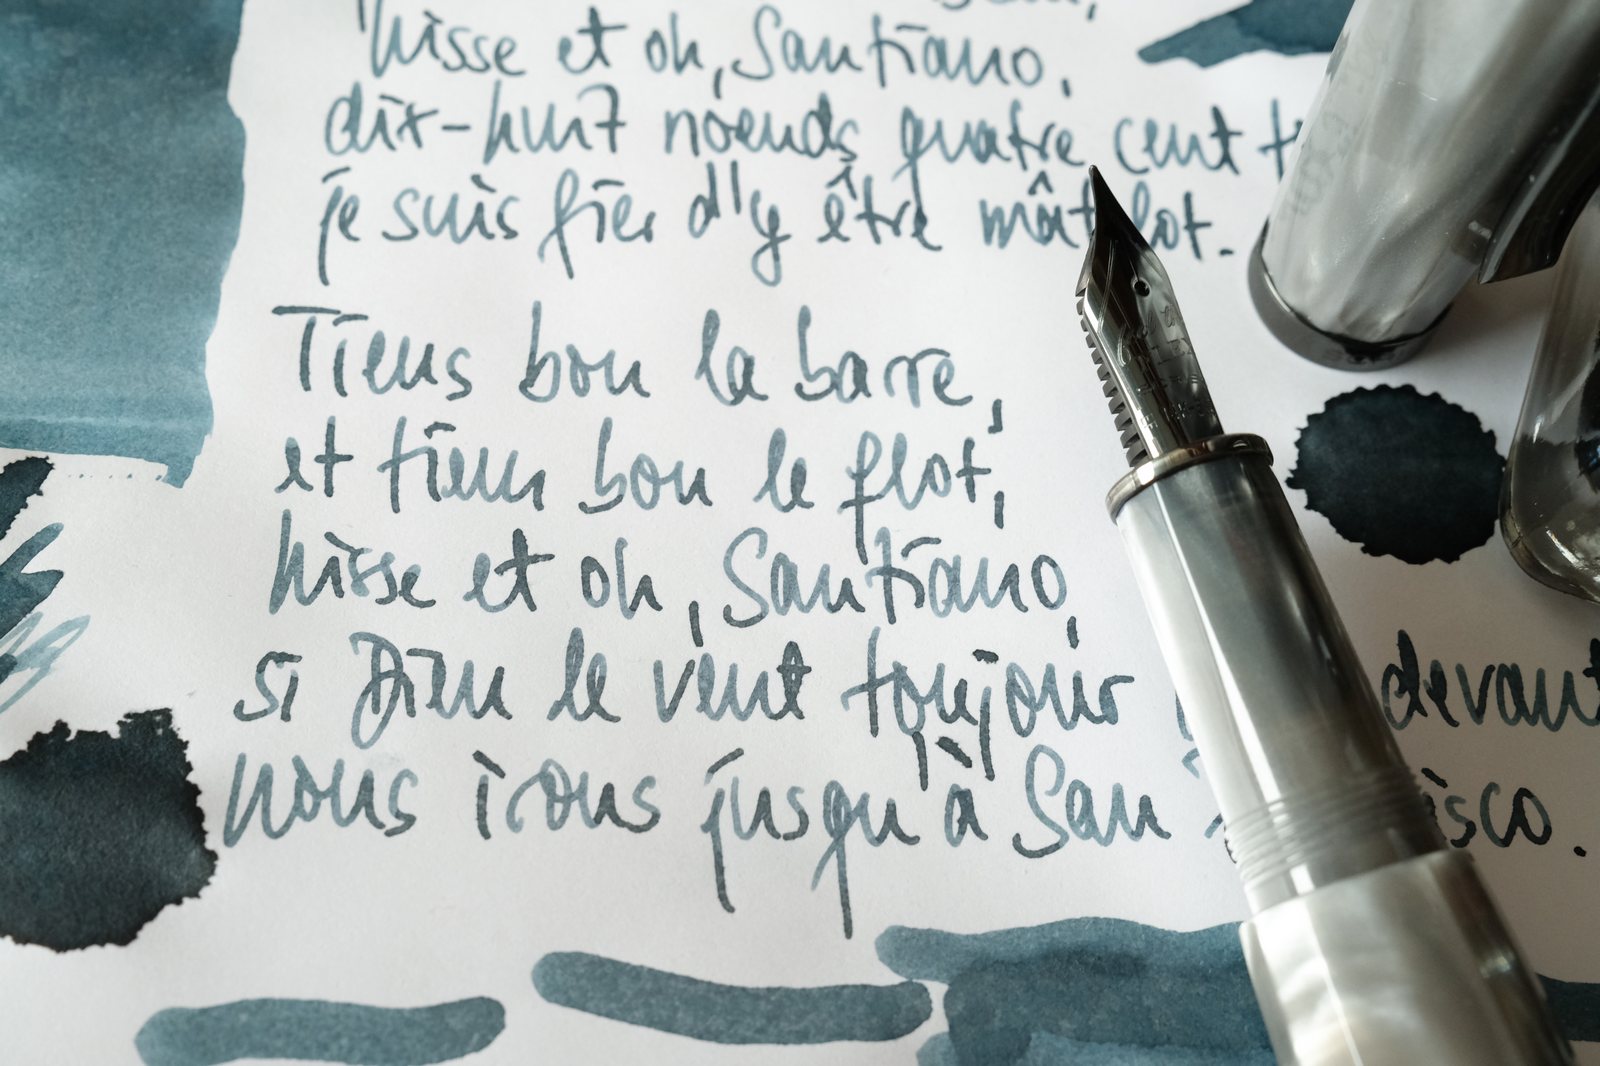 hisse et oh, Santiano,
dix-huit noeuds quatre cent t
je suis fier d'y être matelot.
Tiens bon la barre,
et tiens bon le flot,
hisse et oh, Santiano,
si Dieu le veut toujours devant
nous irons jusqu'à San isco.